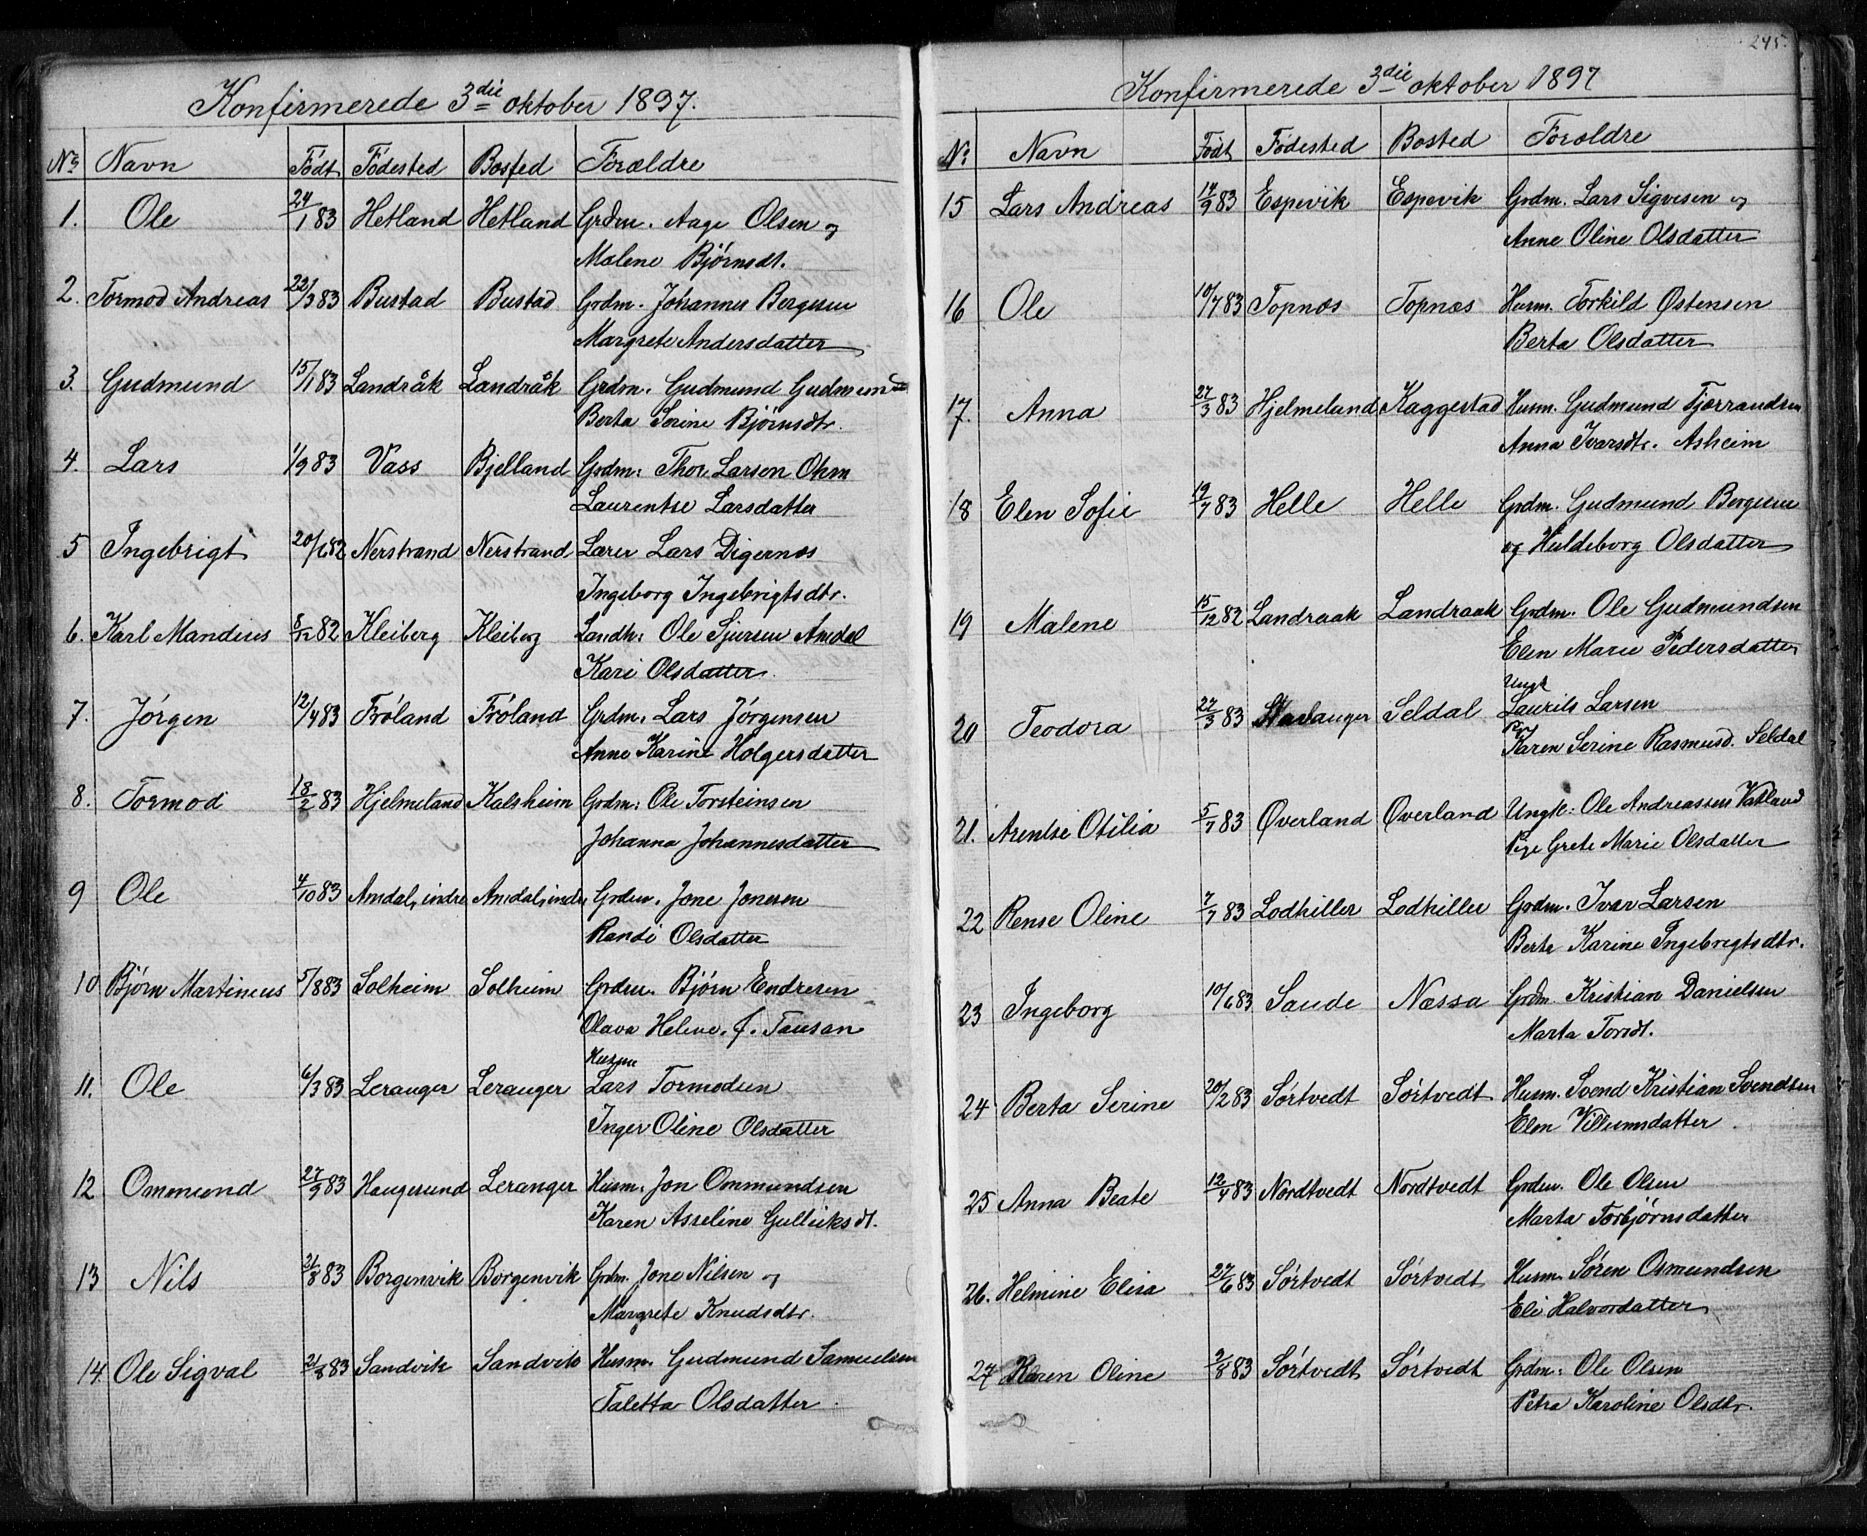 Konfirmerede 3die oktober 1897.
No Navn Født Fødested Bosted Forældre
1. Ole 24/1 83 Hetland Hetland Grdm. Aage Olsen og
Malene Bjørnsdt.
2. Tormod Andreas 22/3 83 Bustad Bustad Grdm. Johannes Bergesen
Margrete Andersdatter
3. Gudmund 15/1 83 Landråk Landråk Grdm. Gudmund
Berta Serine Bjørnsdtr.
4. Lars 1/9 83 Vass Bjelland Grdm: Thor Larsen Ohm
Laurentse Larsdatter
5 Ingebrigt 20/6 82 Nerstrand Nerstrand Lærer Lars Digernæs
Ingeborg Ingebrigtsdtr.
6. Karl Mandius 8/12 82 Kleiberg Kleiberg Landh: Ole Sjursen Amdal
Kari Olsdatter.
7. Jórgen 12/4 83 Fróland Fróland Grdm: Lars Jórgensen
Anne Karine Holgersdatter
8. Tormod 18/2 83 Hjelmeland Kalsheim Grdm: Ole Torsteinsen
Johanna Johannesdatter
9 Ole 4/10 83 Amdal, indre Amdal, indre Grdm. Jone Jonesen
Randi Olsdatter
10 Bjórn Martinius 5/8 83 Solheim Solheim Grdm. Bjórn Endresen
Olava Helene. J. Tausan
Husm
11. Ole 6/3 83 Leranger Leranger Lars Tormodsen
Inger Oline Olsdatter
12 Ommund 27/9 83 Haugesund Leranger Husm. Jon Ommundsen
Karen Asseline Gulliksdt.
13 Nils 21/8 83 Borgenvik Borgenvik Grdm. Jone Nilsen og
Margrete Knudsdtr.
14. Ole Sigval 21/8 83 Sandvik Sandvik Husm. Gudmund Samuelsen
Taletta Olsdatter.
245.
Konfirmerede 3die oktober 1897
No Navn Født Fødested Bosted Foroldre
15 Lars Andreas 14/9 83 Espevik Espevik Grdm. Lars Sigvesen og
Anne Oline Olsdatter
16 Ole 10/7 83 Topnæs Topnæs Husm. Torkild Østensen
Berta Olsdatter
17. Anna 27/3 83 Hjelmeland Kaggestad Husm. Gudmund Tjærrandsen
Anna Ivarsdtr. Asheim
18 Elen Sofie 19/7 83 Helle Helle Grdm. Gudmund Bergesen
og Huldeborg Olsdatter
19 Malene 15/12 82 Landraak Landraak Grdm. Ole Gudmundsen
Elen Marie Pedersdatter
Ungk
20 Teodora 27/3 83 Stavanger Seldal Laurits Larsen
Pig
Karen Serine Rasmusd. Seldal
21. Arentse Otilia 5/7 83 Øverland Øverland Ungk: Ole Andreassen Vatland
Pige Grete Marie Olsdatter
22 Rense Oline 7/7 83 Lodhiller Lodhiller Grdm. Ivar Larsen
Berta Karine Ingebrigtsdtr.
23 Ingeborg 10/6 83 Saude Næssa Grdm. Kristian Danielsen
Marta Toredt.
24 Berta Serine 20/2 83 Sórtvedt Sórtvedt Husm. Svend Kristian Svendsen
Elen Villumsdatter.
25 Anna Beate 12/4 83 Nordtvedt Nordtvedt Grdm. Ole Olsen
Marta Torbjórnsdatter
26. Helmine Elisa 27/6 83 Sórtvedt Sórtvedt Husm. Sóren Osmundsen
Eli Halvordatter
27 Karen Oline 2/8 83 Sórtvedt Sórtvedt Grdm: Ole Olsen
Petra Karoline Olsdtr.